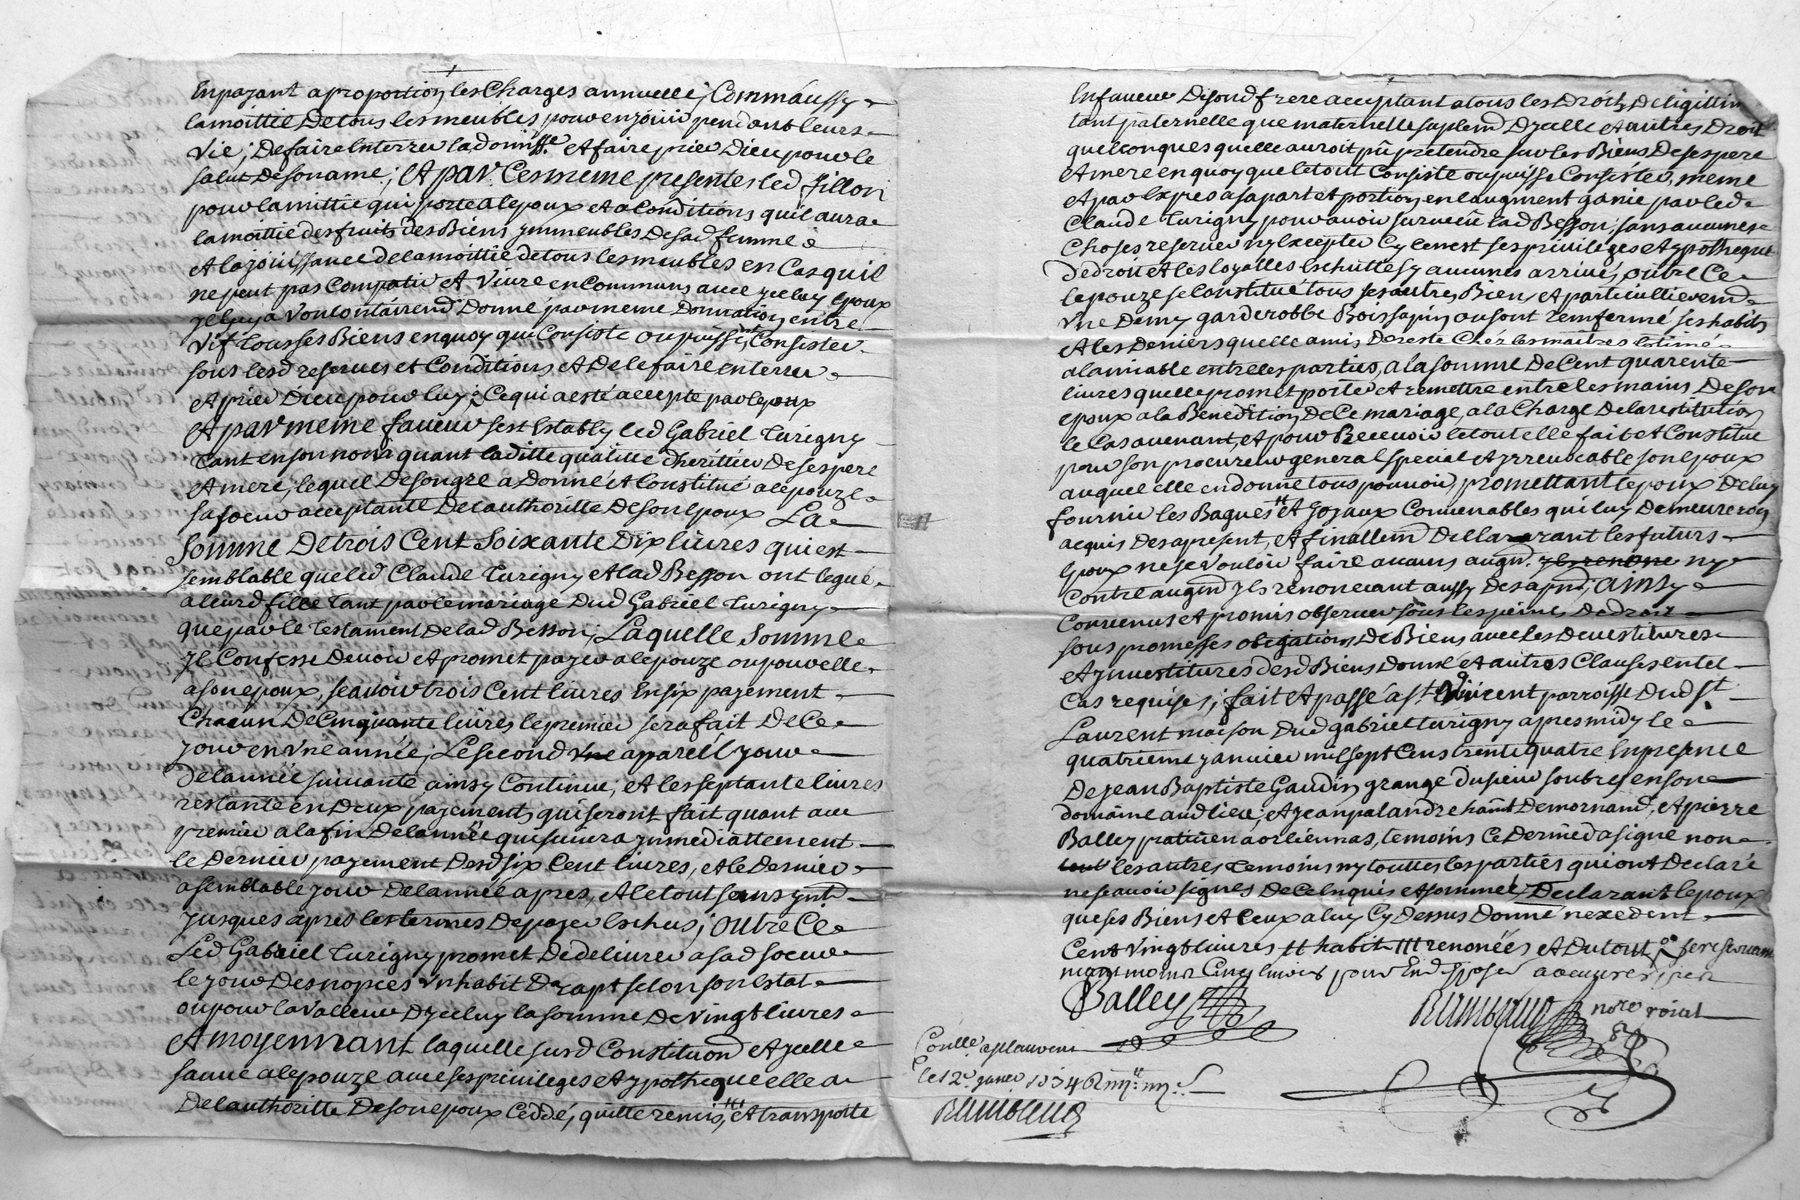 En payant a proportion les Charges annuelles, Comm'aussy
la moittié De tous les meubles pour en jouir pendant leurs
vie; De faire Enterrer la donnatrice Et faire prier Dieu pour le
salut De son ame; Et par Ces meme presentes led fillon
pour l'amittié qui porte a lepoux Et a Conditions quil aura
la moittié des fruits des Biens ymmeubles De sad femme
Et la jouissance de la moittié de tous les meubles en Cas quil
ne peut pas Compatir Et Vivre en Commun avec yceluy Epoux
yl luy a Volontairemd Donné par meme Donnation entre
vif tous ses Biens en quoy qui Consiste ou puissent Consister
sous lesd reserves et Conditions Et De le faire enterrer
Et prier Dieu pour luy; Ce qui a esté accepté par lepoux
Et par meme faveur sest Establÿ led Gabriel Turigny
Tant en son nom quant laditte qualitté dheritier De ses pere
Et mere, lequel De son gré a Donné Et Constitué a lepouze
sa soeur acceptante De l'authoritté De son Epoux La
Somme De trois Cent Soixante Dix livres qui est
semblable que led Claude Turigny Et lad Besson ont legué
a leurd fille tant par le mariage Dud Gabriel Turigny
que par le Testament De lad Besson; Laquelle Somme
yl Confesse Devoir Et promet payer a lepouze ou pour elle
a son epoux, scavoir trois Cent livres En six payement
Chacun De Cinquante livres le premier sera fait De Ce
jour en Vne année, Le second Vne a pareil jour
De lannée suivante ainsy Continué, Et les septante livres
restante en Deux payement qui seront fait quant au
premier a la fin De lannée qui suivra ymmediattement
le Dernier payement Desd six Cent livres, Et le Dernier
a semblable jour De lannée apres, Et le tout sans yntd
jusques apres les termes De payer Echus; outre Ce
Led Gabriel Turigny promet De delivrer a sad soeur
le jour Des nopces Vn habit De rapt selon son Estat
ou pour la Valleur Dyceluy la somme De vingt livres
Et moyennant laquelle susd Constituond Et ycelle
sauve a lepouze avec ses privileges Et ypotheque elle a
De l'authoritté De son epoux Ceddé, quitté remis, Et transporté
En faveur De sond frere acceptant a tous les Droits De ligittime
tant paternelle que maternelle suplemd Dycelle Et autres Droits
quelconques quelle auroit pû pretendre sur les Biens De ses pere
Et mere en quoy que le tout Consiste ou puisse Consister, meme
Et par Exprès a sa part et portion en laugment gagné par led
Claude Turigny pour avoir survecû lad Besson, sans aucunes
Choses reserver ny Excepter Cy Ce nest ses privileges Et ypotheque
De droit Et les loyalles Eschuttes sy aucunes arrivé, outre Ce
lepouze se Constitué tous ses autres Bien Et particullierem
Vne Demy garderobbe Bois sapin ou sont remfermé ses habits
Et les Deniers quelle a mis De reste Chez les maitres Estimé
a lamiable entre les parties, a la somme De Cent quarente
livres quelle promet porter Et remettre entre les mains De son
epoux a la Benediction De Ce mariage, a la Charge De la restitution
le Cas avenant, Et pour Recevoir le tout elle fait et Constitue
pour son procureur general special Et yrrevocable son epoux
auquel elle en donne tous pouvoir, promettant lepoux De luy
fournir les Bagues Et Joyaux Convenables qui luy Demeureront
acquis Des apresent, Et finallemd Declarant les futurs
Epoux ne se Vouloir faire aucuns augmd. yls renonc ny
Contre augmd yls renoncant aussy Des apnt; ainsy
Convenus Et promis observer sous les peines De droit
sous promesses obligations De Biens avec les Devestitures
Et ynvestitures desd Biens Donné et autres Clauses en tel
Cas requises; fait Et passé a st Vincent parroisse Dud st
Laurent maison Dud gabriel turigny apres midy le
quatrieme janvier mil sept Cens trente quatre En presence
De jean Baptiste Gaudin granger du sieur soubry en son
domaine aud lieu, Et jean palandre hant De mornand, Et pierre
Balley praticien a orliennas, temoins Ce Dernier a signé non
les autres temoins ny touttes les parties qui ont Declaré
ne scavoir signer De Ce Enquis Et sommé, Declarant lepoux
que ses Biens Et Ceux a luy Cy Dessus Donné n'excedent
Cent vingt livres tt habit ttt renoncés Et Du tout
Balley
not.re roial
Con.llé
le 12e janer 1734